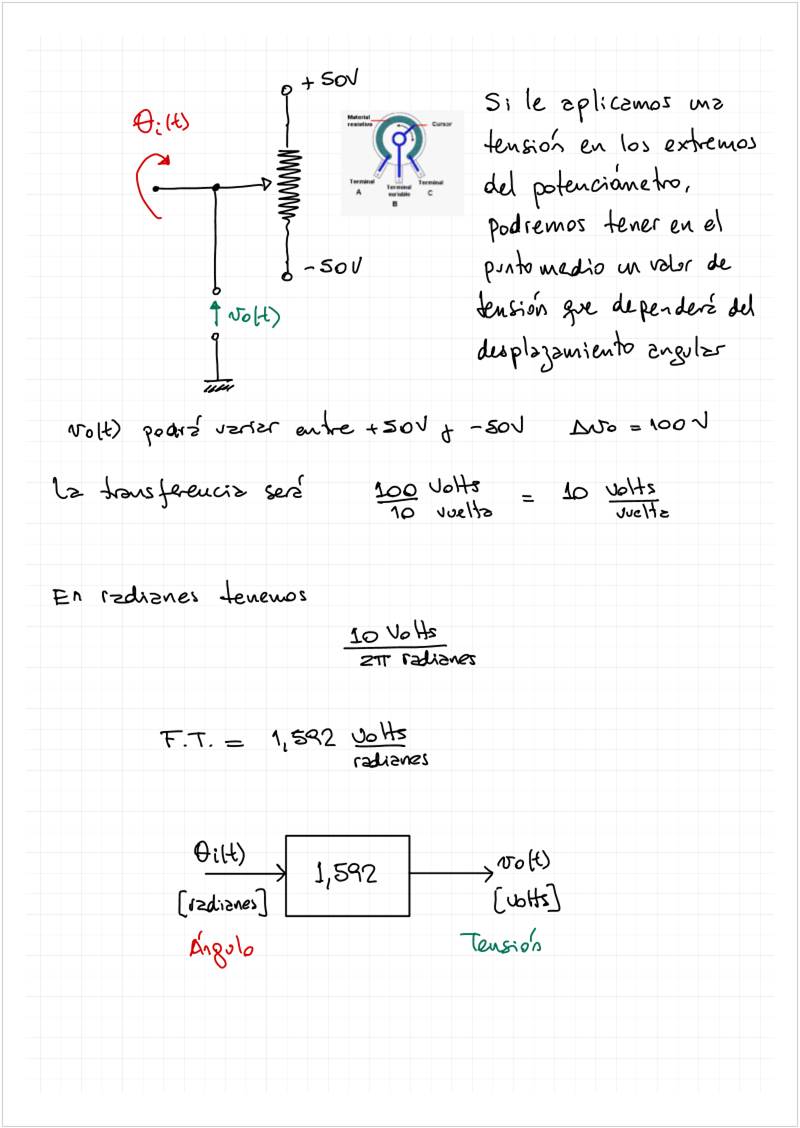 + 50V
θi(t)
- 50V
vo(t)
Material
resistivo
Cursor
Terminal
A
Terminal
variable
B
Terminal
C
Si le aplicamos una
tensión en los extremos
del potenciámetro,
podremos tener en el
punto medio un valor de
tensión que dependerá del
desplazamiento angular
vo(t) podrá variar entre +50V y -50V ΔVo = 100 V
La transferencia será 100 Volts / 10 vuelta = 10 Volts / vuelta
En radianes tenemos
10 Volts / 2π radianes
F.T. = 1,592 Volts / radianes
θi(t) 1,592 vo(t)
[radianes] [Volts]
Ángulo Tensión